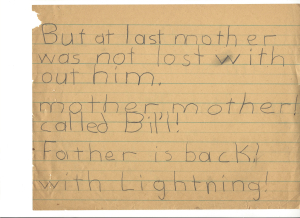 But at last mother
was not lost with
out him.
mother, mother!
called Bill!
Father is back!
with Lightning!